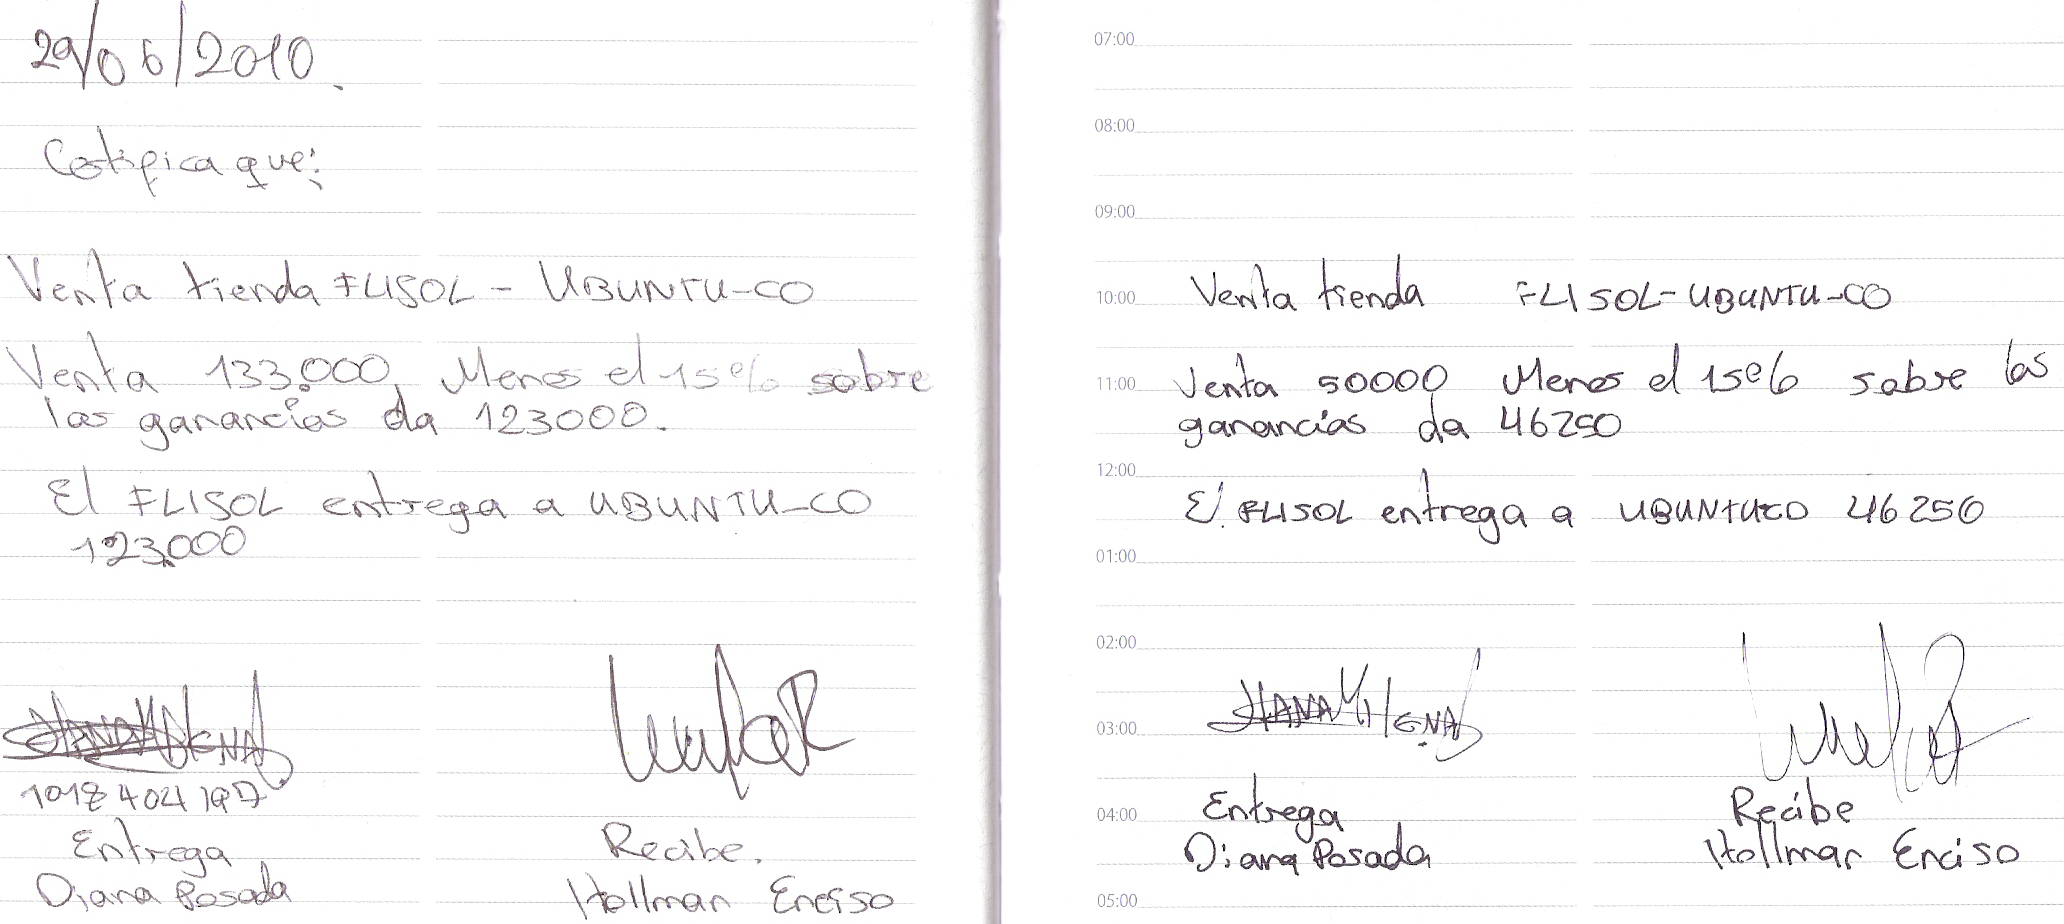 29/06/2010.
Cetifica que:
Venta tienda FLISOL - UBUNTU-CO
Venta 133.000, Menos el 15% sobre
las ganancias da 123000.
El FLISOL entrega a UBUNTU-CO
123.000
1018404197
Entrega
Diana Posada
Recibe.
Hollman Enciso
07:00
08:00
09:00
10:00
Venta tienda FLISOL-UBUNTU-CO
11:00
Venta 50000 Menos el 15% sobre las
ganancias da 46250
12:00
El FLISOL entrega a UBUNTUCO 46250
01:00
02:00
03:00
04:00
Entrega
Diana Posada
Recibe
Hollmar Enciso
05:00